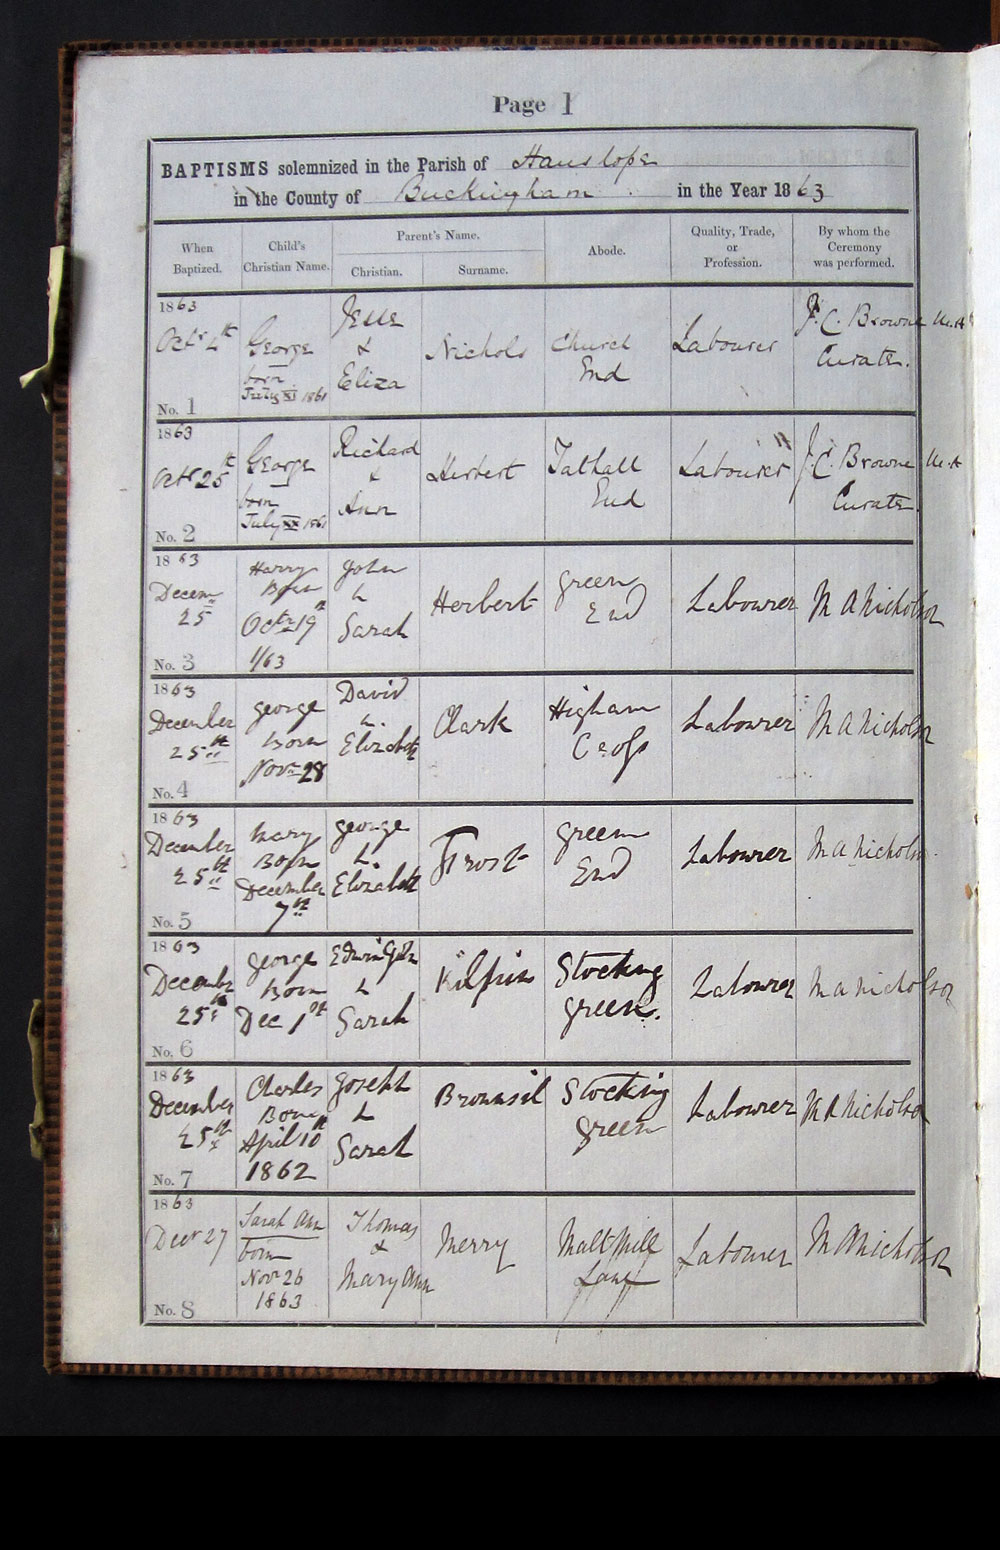 Page 1
BAPTISMS solemnized in the Parish of Hanslope
in the County of Buckingham in the Year 1863
When Baptized.
Child's Christian Name.
Parent's Name.
Christian.
Surname.
Abode.
Quality, Trade, or Profession.
By whom the Ceremony was performed.
1863
Octr 4th
No. 1
George
born
July XI 1861
Jesse
&
Eliza
Nichols
Church
End
Labourer
J. C. Browne M.A
Curate.
1863
Octr 25th
No. 2
George
born
July XX 1861
Richard
&
Ann
Herbert
Tathall
End
Labourer
J. C. Browne M.A
Curate.
1863
Decem
25
No. 3
Harry
Born
Octr 19th
1/63
John
&
Sarah
Herbert
Green
End
Labourer
M A Nicholson
1863
December
25th
No. 4
George
Born
Novr 28
David
&
Elizabeth
Clark
Higham
Cross
Labourer
M A Nicholson
1863
December
25th
No. 5
Mary
Born
December
7th
George
&
Elizabeth
Frost
Green
End
Labourer
M A Nicholson
1863
December
25th
No. 6
George
Born
Dec 1st
Edwin
&
Sarah
Kilpin
Stocking
Green.
Labourer
M A Nicholson
1863
December
25th
No. 7
Charles
Born
April 10th
1862
Joseph
&
Sarah
Brownsil
Stocking
Green
Labourer
M A Nicholson
1863
Decr 27
No. 8
Sarah Ann
born
Novr 26
1863
Thomas
&
Mary Ann
Merry
Malt Mill
Lane
Labourer
M A Nicholson